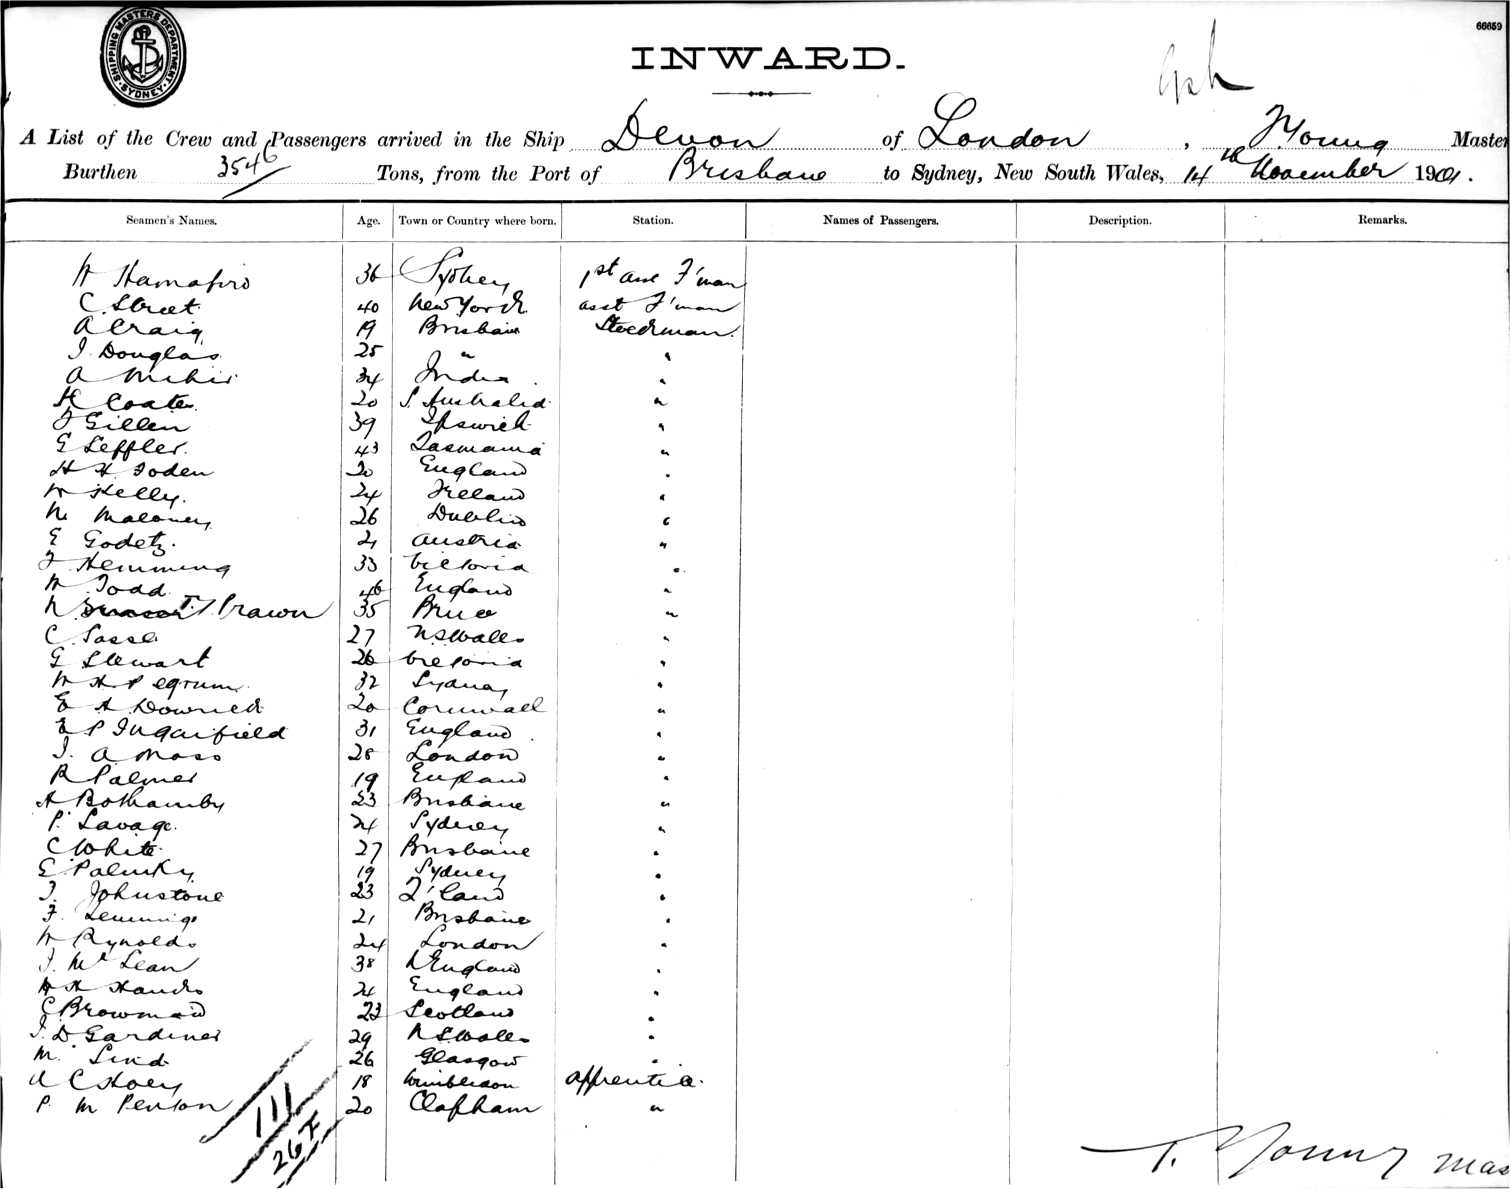 SHIPPING MASTERS DEPARTMENT SYDNEY
66659
INWARD.
A List of the Crew and Passengers arrived in the Ship Devon of London, T Young Master
Burthen 3546 Tons, from the Port of Brisbane to Sydney, New South Wales, 14th November 1901.
Seamen's Names. Age. Town or Country where born. Station. Names of Passengers. Description. Remarks.
36 Sydney 1st asst F'man
C. Street 40 New York asst F'man
A Craig 19 Brisbane
J. Douglas 25 " "
A 34 India "
H Coates 20 S. Australia "
J Gillen 39 Ipswich "
G Leffler. 43 Tasmania "
H H Foden 20 England "
W Kelly. 24 Ireland "
Maloney 26 Dublin "
E Godetz. 21 Austria "
J Hemming 33 Victoria "
W Todd 46 England "
35 "
C 27 N S Wales "
G Stewart 26 Victoria "
W H Pegrum 32 Sydney "
E A Downich 20 Cornwall "
E P Ingarfield 31 England "
J. A Moss 28 London "
R Palmer 19 England "
A Bothamby 23 Brisbane "
P. Savage. 24 Sydney "
C White 27 Brisbane "
E 19 Sydney "
J. Johnstone 23 Q'land "
F. 21 Brisbane "
W Rynolds 24 London "
J. Mc Lean 38 England "
H H Hands 24 England "
C 23 Scotland "
J. D Gardiner 29 N S Wales "
M. Lind 26 Glasgow "
A C Hoey 18 Wimbledon apprentice.
P. M Penson 20 Clapham "
111
T. Young Mas